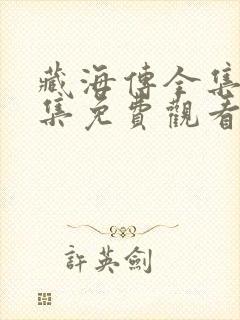 藏海傳全集
集免費觀看
許英劍